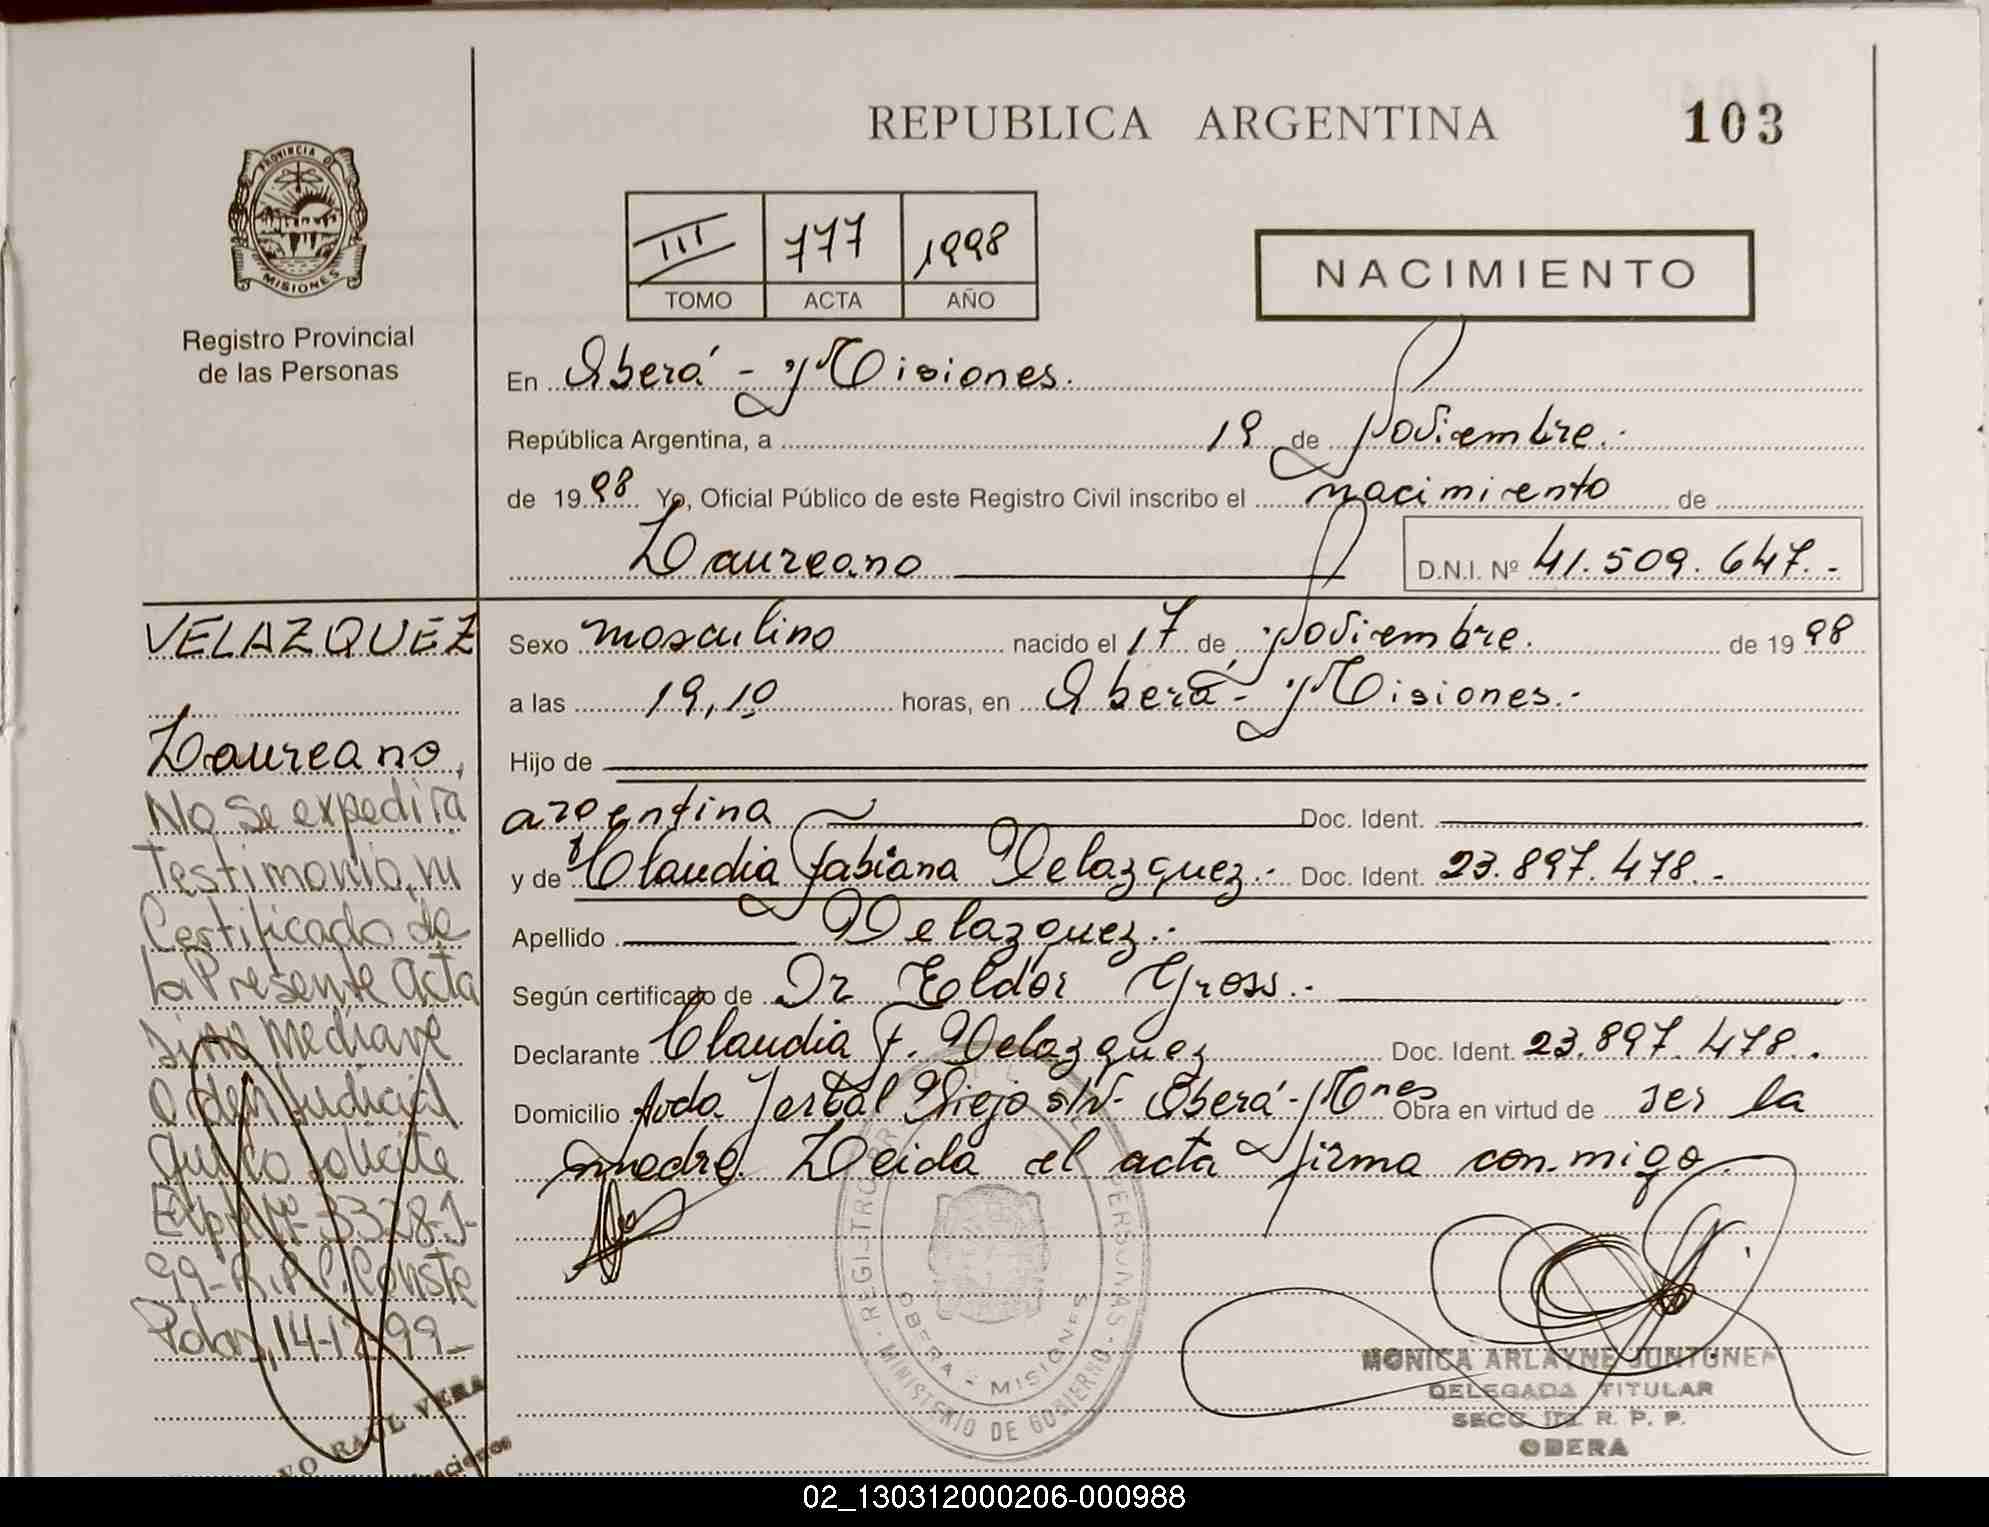 REPUBLICA ARGENTINA
103
PROVINCIA D
MISIONES
Registro Provincial
de las Personas
III 777 1998
TOMO ACTA AÑO
NACIMIENTO
En Oberá - Misiones.
República Argentina, a 19 de Noviembre.-
de 1998 Yo, Oficial Público de este Registro Civil inscribo el nacimiento de
Laureano
D.N.I. Nº 41.509.647.-
VELAZQUEZ
Laureano,
No se expedira
Testimonio, ni
Certificado de
La Presente acta
sino Mediante
Orden Judicial
que lo solicite
Expte Nº 3328-J-
99-R.P.P. Conste
Pdas, 14-12-99-
RAUL VERA
Sexo masculino nacido el 17 de Noviembre. de 1998
a las 19,10 horas, en Oberá - Misiones.-
Hijo de
argentina Doc. Ident.
y de Claudia Fabiana Velazquez.- Doc. Ident. 23.897.478.-
Apellido Velazquez.-
Según certificado de Dr Eldor Gross.-
Declarante Claudia F. Velazquez Doc. Ident. 23.897.478.
Domicilio Avda Yerbal Viejo s/N- Oberá - Mnes Obra en virtud de ser la
madre. Leida el acta firma conmigo
REGISTRO PERSONAS
OBERA - MISIONES
MINISTERIO DE GOBIERNO
MONICA ARLAYNE JUNTUNEN
DELEGADA TITULAR
SECC. III R. P. P.
OBERA
02_130312000206-000988